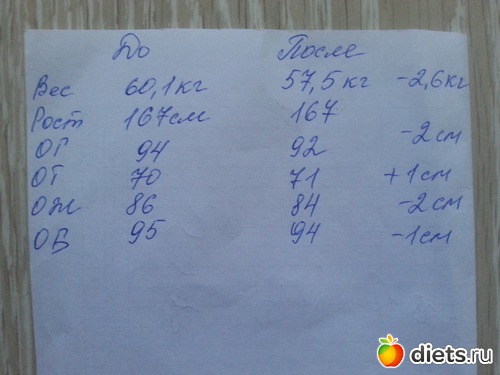 До После
Вес 60,1кг 57,5кг -2,6кг
Рост 167см 167
ОГ 94 92 -2см
ОТ 70 71 +1см
ОЖ 86 84 -2см
ОБ 95 94 -1см
diets.ru